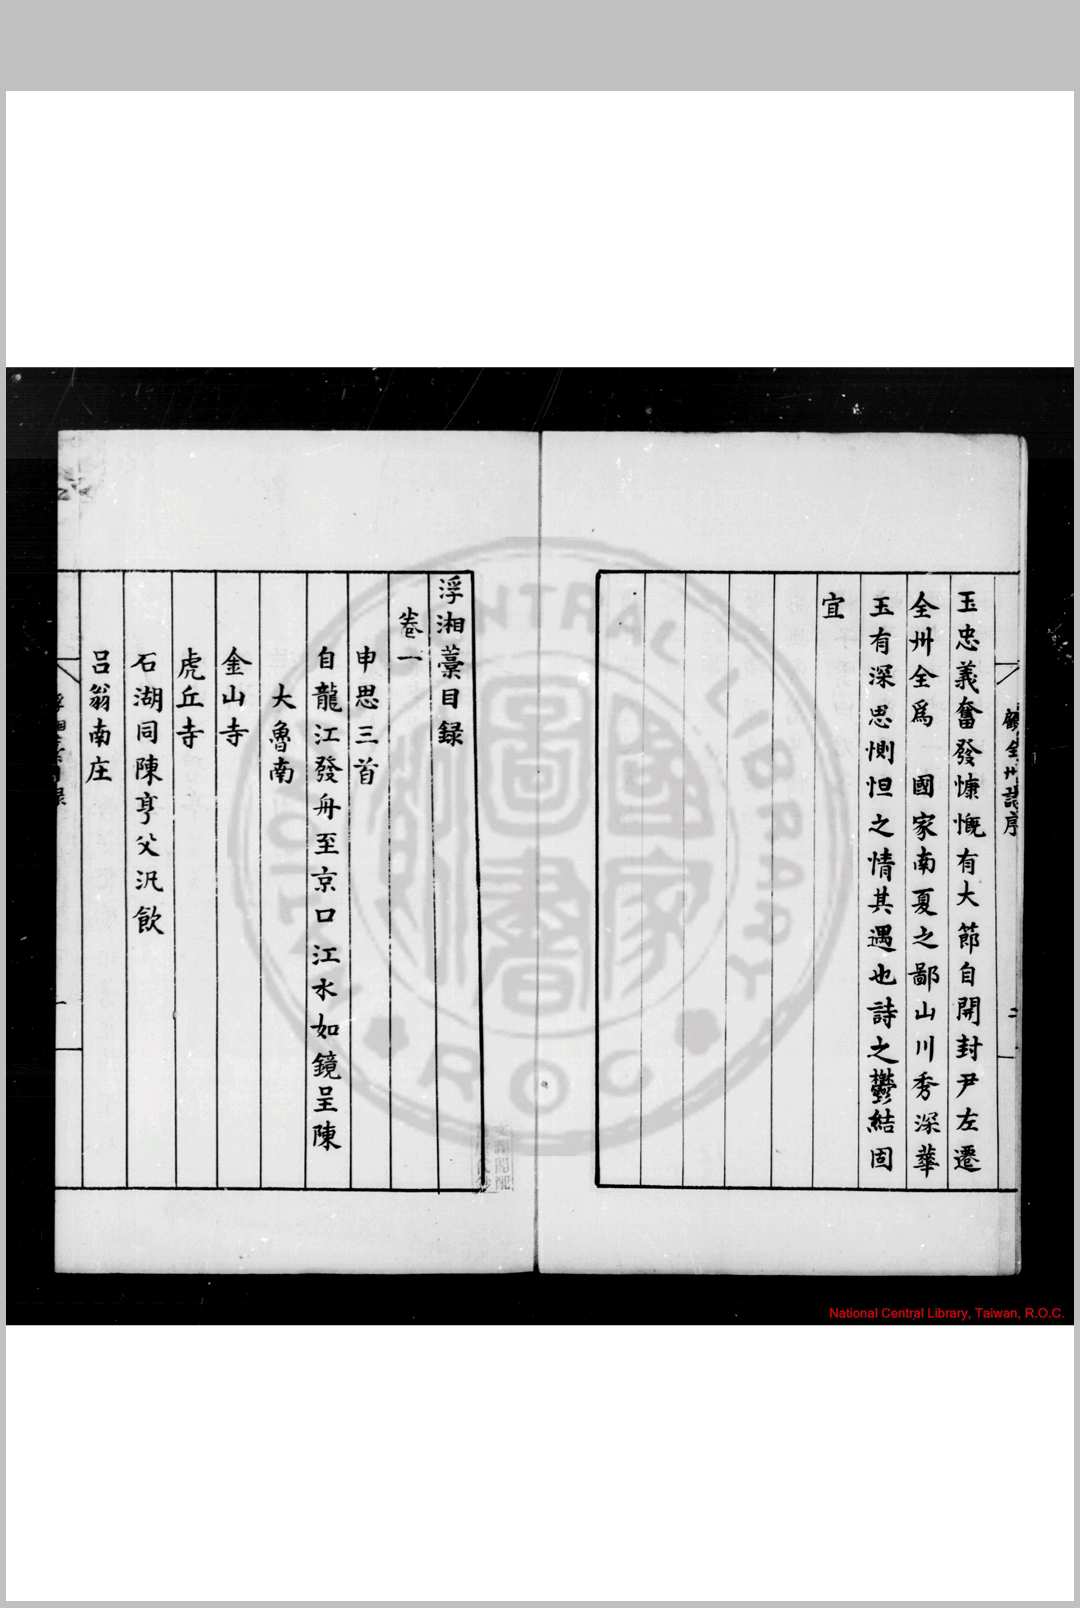 顧全州詩序
二
玉忠義奮發慷慨有大節自開封尹左遷
全州全爲 國家南夏之鄙山川秀深華
玉有深思惻怛之情其遇也詩之鬱結固
宜
浮湘藁目録
卷一
申思三首
自龍江發舟至京口江水如鏡呈陳
大魯南
金山寺
虎丘寺
石湖同陳亨父汎飲
呂翁南庄
浮湘藁目録
一
NATIONAL CENTRAL LIBRARY
R.O.C
國家圖書館
National Central Library, Taiwan, R.O.C.